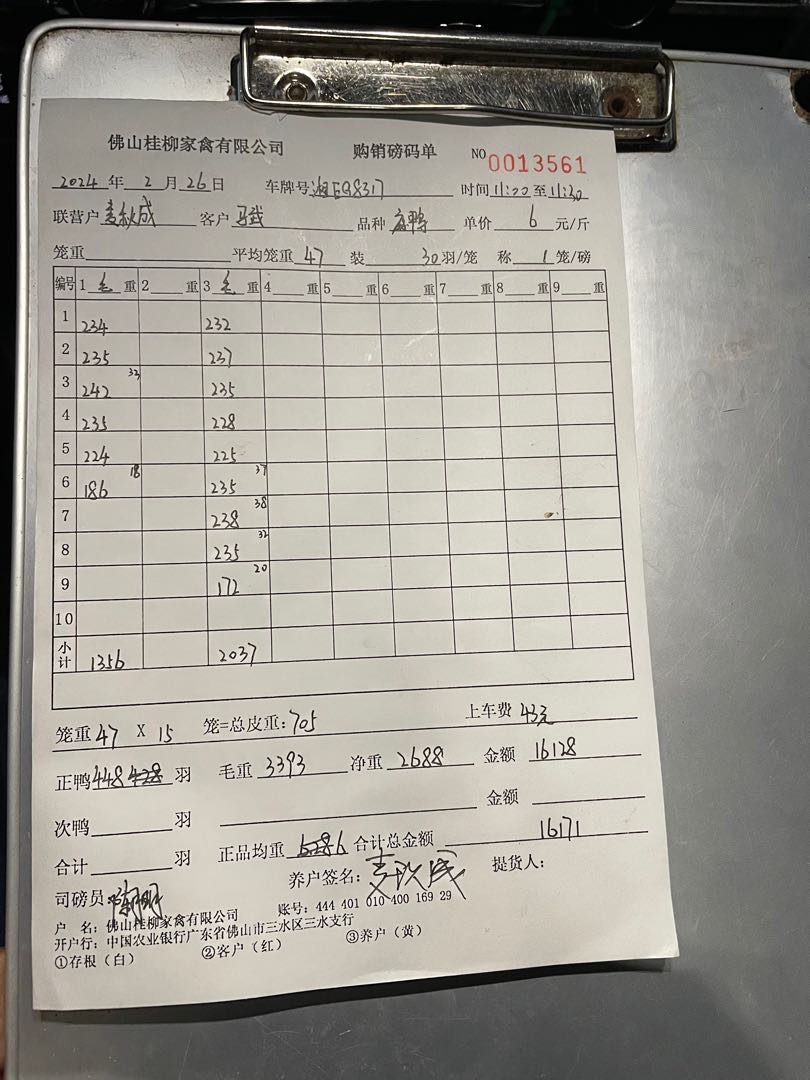 佛山桂柳家禽有限公司 购销磅码单 NO 0013561
2024 年 2 月 26 日 车牌号 湘EQ8317 时间 11:00 至 11:30
联营户 麦秋成 客户 马武 品种 麻鸭 单价 6 元/斤
笼重 平均笼重 47 装 30 羽/笼 称 1 笼/磅
编号 1 毛 重 2 重 3 毛 重 4 重 5 重 6 重 7 重 8 重 9 重
1 234 232
2 235 237
3 242 33 235
4 235 228
5 224 225
6 186 18 235 37
7 238 38
8 235 32
9 172 20
10
小计 1356 2037
笼重 47 X 15 笼=总皮重: 705 上车费 43元
正鸭 448 428 羽 毛重 3393 净重 2688 金额 16128
次鸭 羽 金额
合计 羽 正品均重 6 合计总金额 16171
司磅员: 养户签名: 麦秋成 提货人:
户 名: 佛山桂柳家禽有限公司 账号: 444 401 010 400 169 29
开户行: 中国农业银行广东省佛山市三水区三水支行
①存根（白） ②客户（红） ③养户（黄）